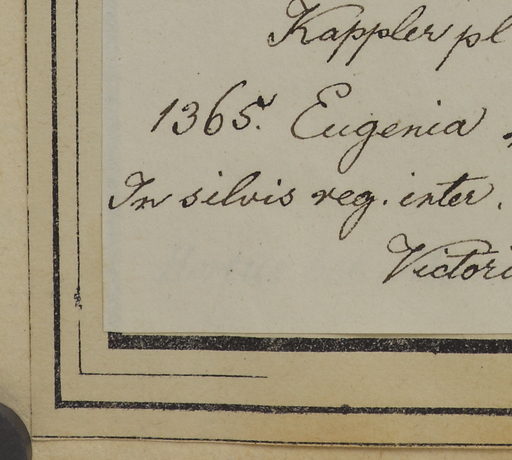 Kappler pl
1365. Eugenia
In silvis reg. inter.
Victori